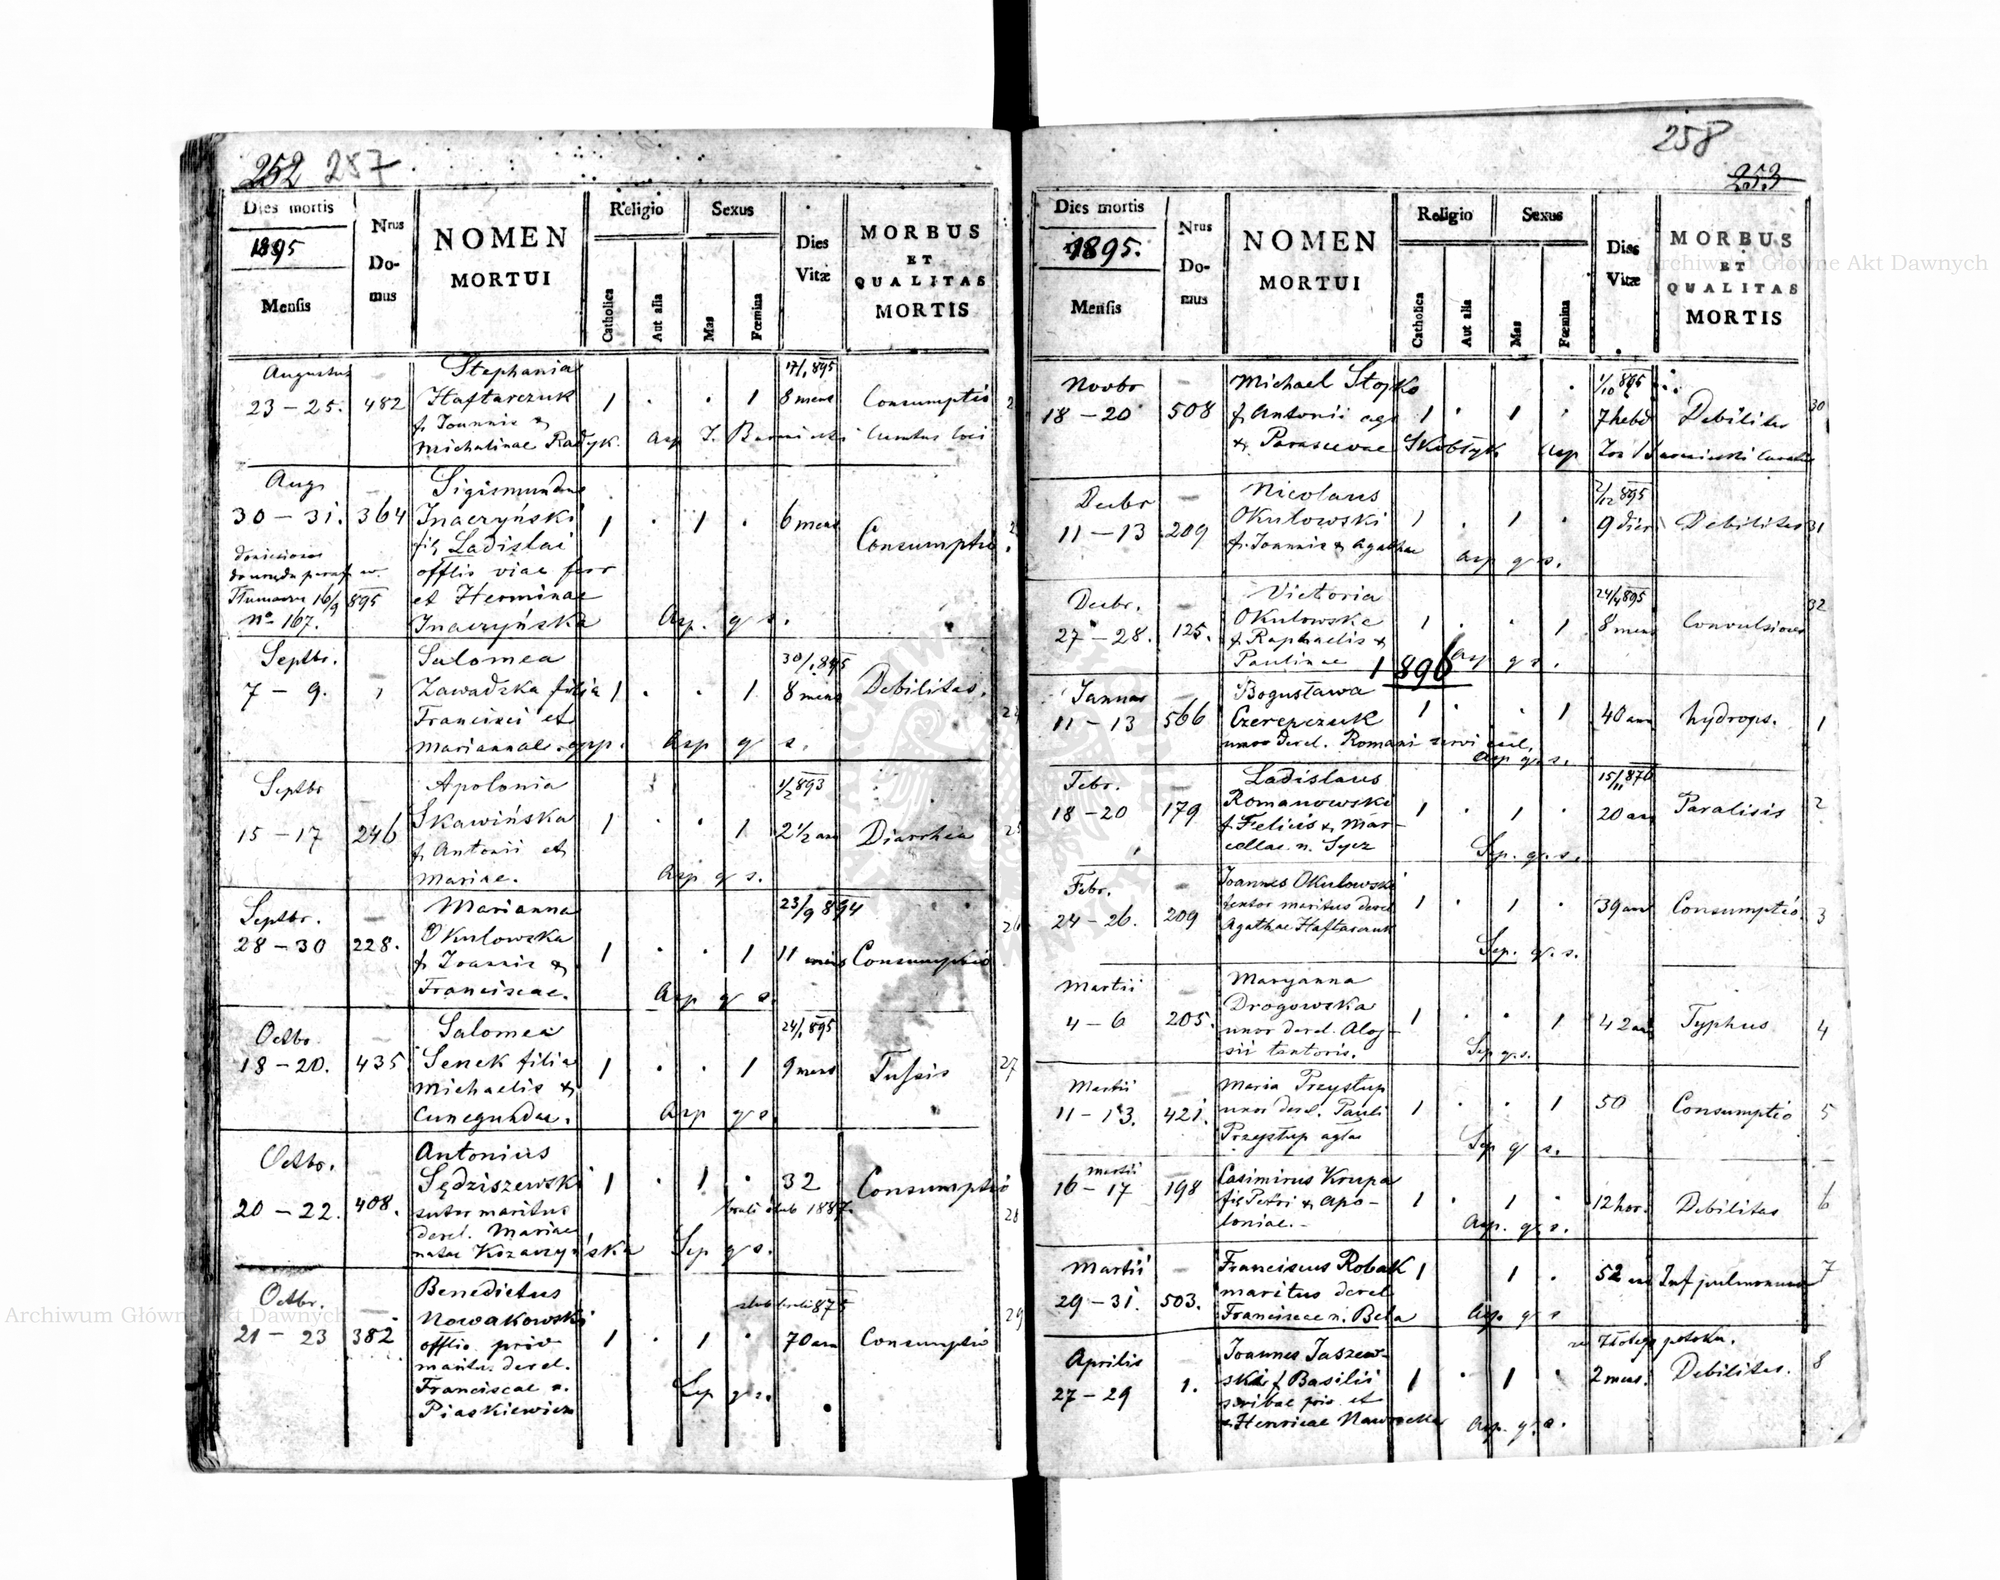 252 257
Dies mortis
1895
Mensis
Nrus
Do-
mus
NOMEN
MORTUI
Religio
Catholica
Aut alia
Sexus
Mas
Fœmina
Dies
Vitæ
MORBUS
ET
QUALITAS
MORTIS
Augustus
23 – 25. 482
Stephania
Haftarczuk
f. Joannis &
Michalinae Radyk.
1 . . 1
17/1 895
8 mens
Consumptio
Asp J. Barnicki Curatus loci
Aug.
30 – 31. 364
Doniesiono
do urzędu paraf w.
Tłumaczu 16/9 895
no 167.
Sigismundus
Inaczyński
fil. Ladislai
offlis viae ferr
et Herminae
Inaczyńska
1 . 1 .
6 mens
Consumptio.
Asp. q s.
Septbr.
7 – 9.
Salomea
Zawadzka filia
Francisci et
Mariannae. opp.
1 . . 1
30/1 895
8 mens
Debilitas.
24
Asp q s.
Septbr
15 – 17 246
Apolonia
Skawińska
f. Antonii et
Mariae.
1 . . 1
1/2 893
2 1/2 an
Diarrhea
25
Asp q s.
Septbr.
28 – 30 228.
Marianna
Okulowska
f. Joannis &
Franciscae.
1 . . 1
23/9 894
11 mens
Consumptio
26
Asp q s.
Octbr.
18 – 20. 435
Salomea
Senek filia
Michaelis &
Cunegundae.
1 . . 1
24/1 895
9 mens
Tussis
27
Asp q s.
Octbr.
20 – 22. 408.
Antonius
Sędziszewski
sutor maritus
derel. Mariae
natae Kozaczyńska
1 . 1 .
32
brali ślub 1887.
Consumptio
28
Sep q s.
Octbr.
21 – 23 382
Benedictus
Nowakowski
offlis priv
maritu. derel.
Franciscae n.
Piaskiewicz
1 . 1 .
ślub brali 875
70 an
Consumptio
29
Sep q s.
258
253
Dies mortis
1895.
Mensis
Nrus
Do-
mus
NOMEN
MORTUI
Religio
Catholica
Aut alia
Sexus
Mas
Fœmina
Dies
Vitæ
MORBUS
ET
QUALITAS
MORTIS
Novbr
18 – 20 508
Michael Stojko
f. Antonii agr
& Parascevae Skobłyk
1 . 1 .
1/10 895
7 hebd
Debilitas
30
Asp
Decbr
11 – 13 209
Nicolaus
Okulowski
f. Joannis & Agathae
1 . 1 .
2/12 895
9 dier
Debilitas
31
Asp q s.
Decbr.
27 – 28. 125.
Victoria
Okulowska
f. Raphaelis &
Paulinae
1 . . 1
24/4 895
8 mens
Convulsiones
32
Asp q s.
1896
Januar
11 – 13 566
Bogusława
Czerepczuk
uxor derel. Romani servi
1 . . 1
40 ann
hydrops.
1
Asp q. s.
Febr.
18 – 20 179
Ladislaus
Romanowski
f. Felicis & Mar-
cellae n. Sycz
1 . 1 .
15/11 876
20 an
Paralisis
2
Sep. q. s.
Febr.
24 – 26. 209
Joannes Okulowski
textor maritus derel
Agathae Haftarczuk
1 . 1 .
39 an
Consumptio
3
Sep. q. s.
Martii
4 – 6 205.
Maryanna
Drogowska
uxor derel. Aloy-
sii textoris.
1 . . 1
42 an
Typhus
4
Sep q. s.
Martii
11 – 13. 421.
Maria Przystup
uxor derel. Pauli
Przystup aglae
1 . . 1
50
Consumptio
5
Sep q s.
martii
16 – 17 198
Casimirus Krupa
fil Petri & Apo-
loniae.
1 . 1 .
12 hor.
Debilitas
6
Asp. q. s.
Martii
29 – 31. 503.
Franciscus Robak
maritus derel
Franciscae n. Beła
1 1 .
52 an
Inf pulmonum
7
Asp. q s
Aprilis
27 – 29 1.
Joannes Jaszew-
ski f. Basilii
scribae priv. et
Henricae Nawrocka
1 . 1 .
ze Złotego potoka.
2 mens.
Debilitas.
8
Asp. q. s.
Archiwum Główne Akt Dawnych
Archiwum Główne Akt Dawnych